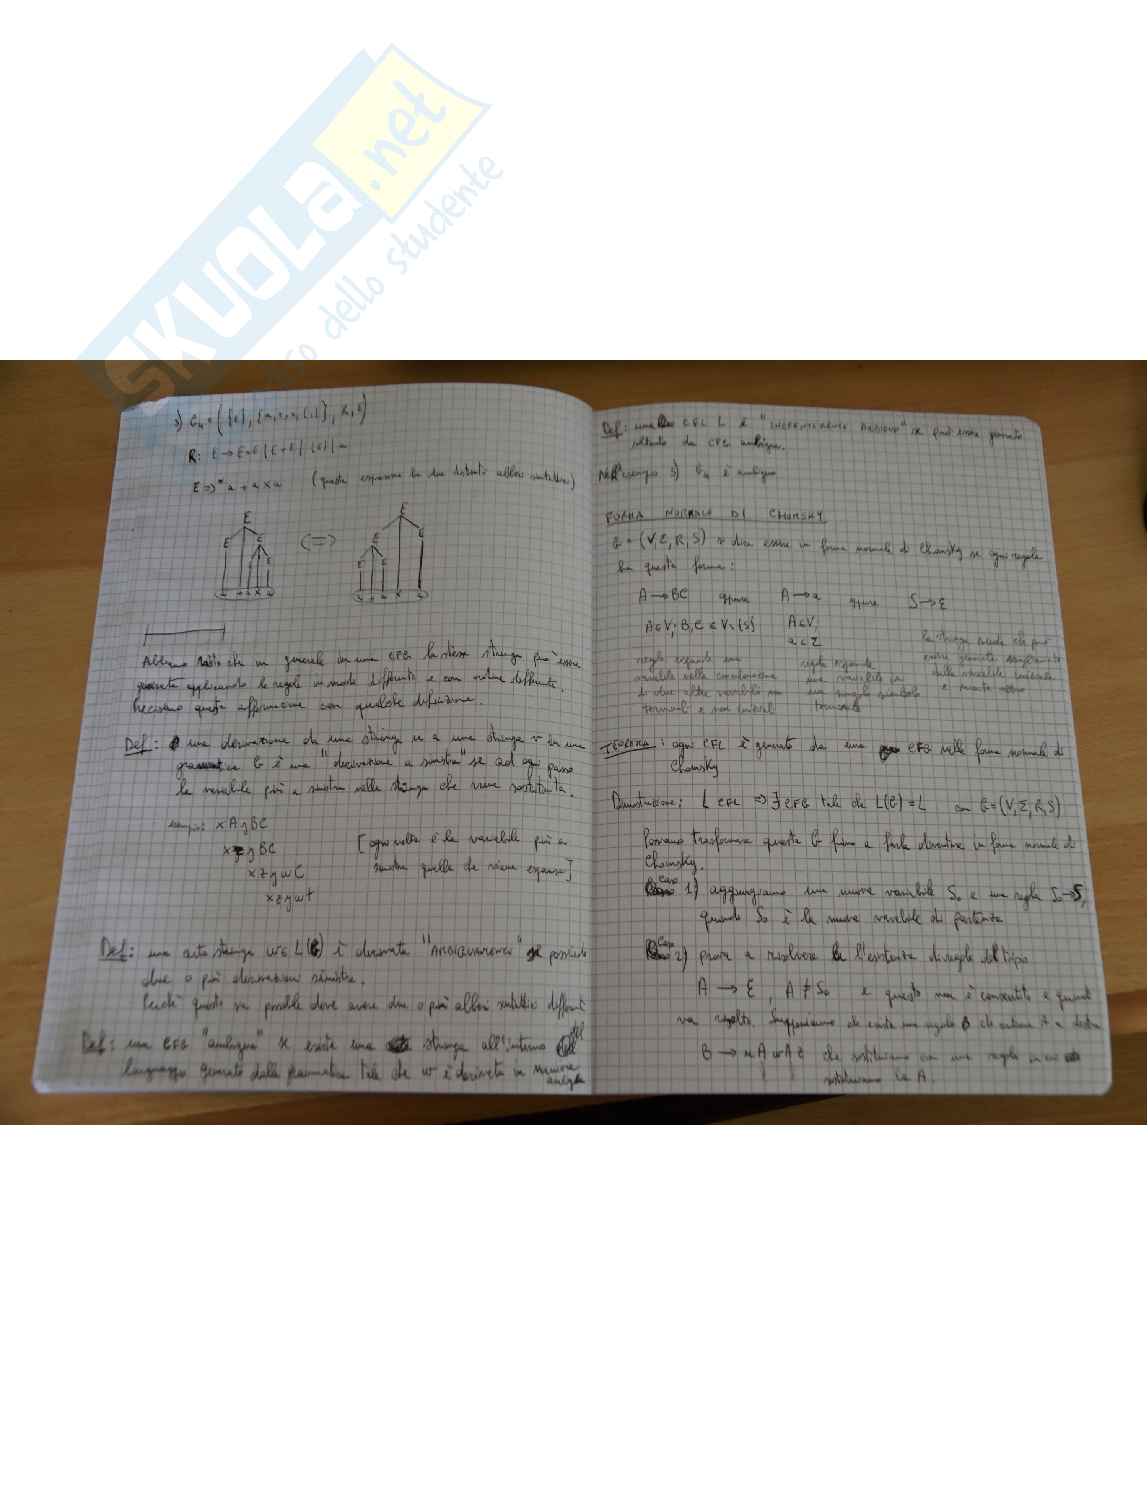 SKUOLA.net
dello studente
3) G₄ = ({E}, {a,+,x,(,)}, R, E)
R: E → E×E | E+E | (E) | a
E ⇒* a + a x a (questa espressione ha due distinti alberi sintattici)
E
E E
E E
(⇐⇒)
E
E E
E E
Abbiamo visto che in generale in una CFG la stessa stringa può essere
generata applicando le regole in modo differente e con ordine differente.
Facciamo questa affermazione con qualche definizione.
Def: una derivazione da una stringa u a una stringa v in una
grammatica G è una "derivazione a sinistra" se ad ogni passo
la variabile più a sinistra nella stringa che viene sostituita.
esempio: x A y B C
x z y B C
x z y w C
x z y w t
[ogni volta è la variabile più a
sinistra quella che viene espansa]
Def: una certa stringa w ∈ L(G) è derivata "AMBIGUAMENTE" se possiede
due o più derivazioni sinistre.
Perché questo sia possibile deve avere due o più alberi sintattici differenti
Def: una CFG "ambigua" se esiste una stringa all'interno del
linguaggio generato dalla grammatica tale che w è derivata in maniera
ambigua
Def: una CFL L è "INERENTEMENTE AMBIGUO" se può essere generato
soltanto da CFG ambigue.
Nell'esempio 3) G₄ è ambigua
FORMA NORMALE DI CHOMSKY
G = (V,Σ,R,S) si dice essere in forma normale di Chomsky se ogni regola
ha questa forma:
A → BC oppure A → a oppure S → ε
A ∈ V; B,C ∈ V \ {S} A ∈ V;
a ∈ Σ
regola espande una
variabile nella combinazione
di due altre variabili non
terminali e non iniziali
regola espande
una variabile in
un singolo simbolo
terminale
la stringa vuota che può
essere generata
dalla variabile iniziale
e
TEOREMA: ogni CFL è generato da una CFG nella forma normale di
Chomsky
Dimostrazione: L CFL ⇒ ∃ CFG tale che L(G) = L con G = (V,Σ,R,S)
Possiamo trasformare questa G fino a farla diventare in forma normale di
Chomsky.
Caso 1) aggiungiamo una nuova variabile S₀ e una regola S₀ → S,
quando S₀ è la nuova variabile di partenza
Caso 2) prova a risolvere l'esistenza di regole del tipo
A → ε, A ≠ S₀ e questo non è consentito e quindi
va risolto. Supponiamo che esista una regola B che contiene A a destra
B → u A v A z che sostituiamo con una regola in cui
sostituiamo la A.